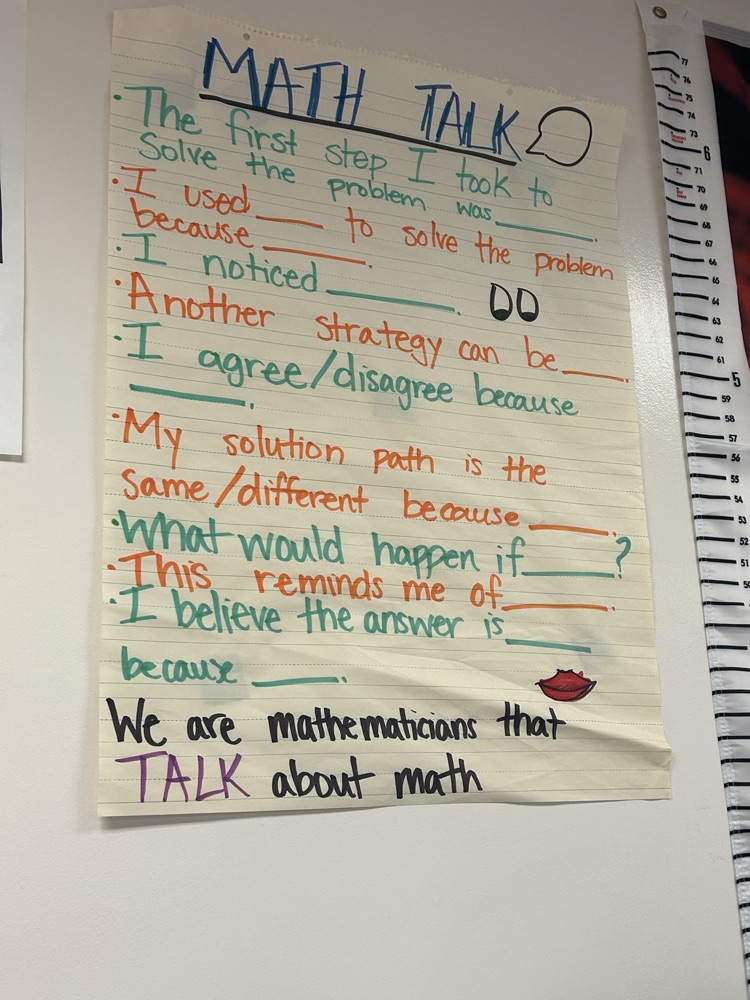 MATH TALK
• The first step I took to
solve the problem was ______.
• I used ____ to solve the problem
because ______.
• I noticed ________.
• Another strategy can be ____.
• I agree/disagree because
_______.
• My solution path is the
same/different because _____.
• What would happen if ______?
• This reminds me of _______.
• I believe the answer is _____
because _____.
We are mathematicians that
TALK about math
77
76
75
74
73
6
71
70
69
68
67
66
65
64
63
62
61
5
59
58
57
56
55
54
53
52
51
50